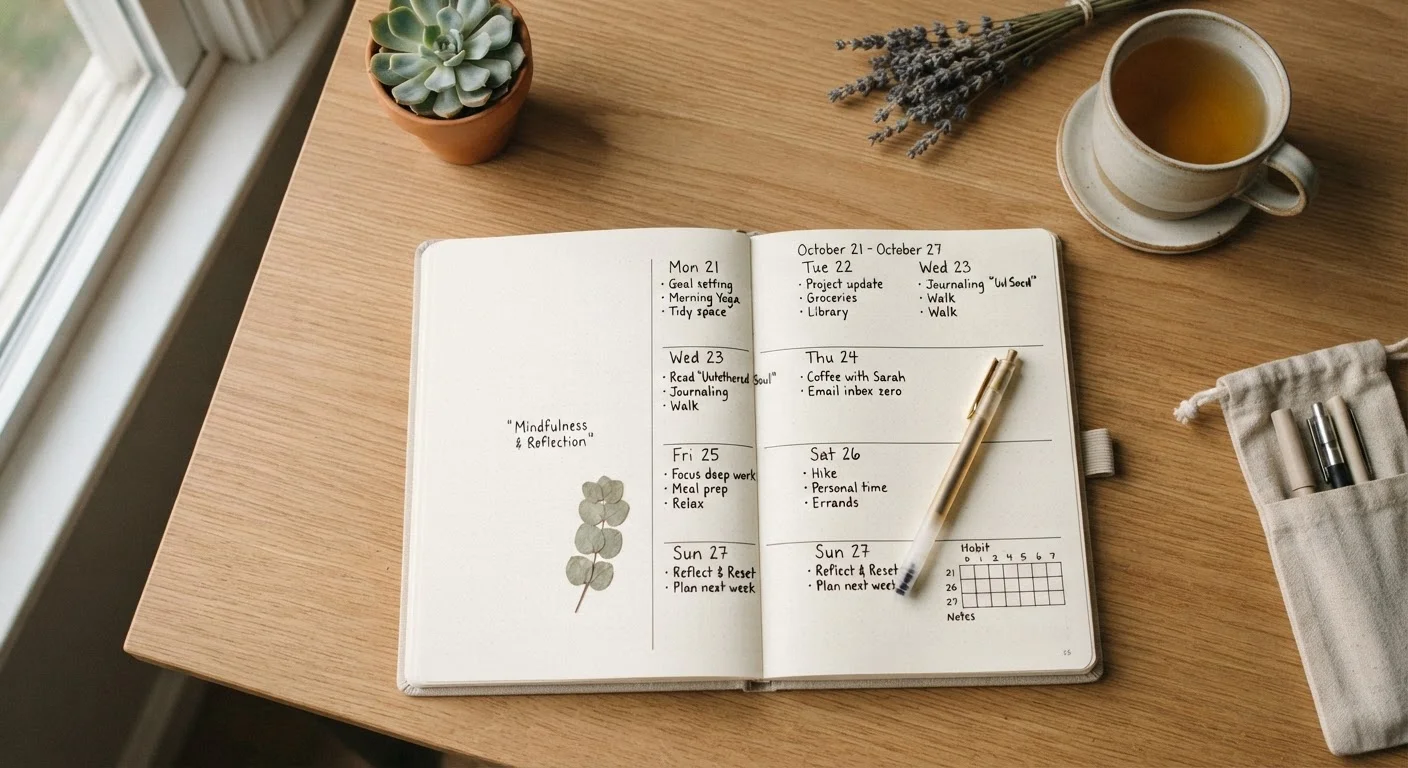 "Mindfulness
& Reflection"
Mon 21
• Goal setting
• Morning Yoga
• Tidy space
Wed 23
• Read "Untethered Soul"
• Journaling
• Walk
Fri 25
• Focus deep work
• Meal prep
• Relax
Sun 27
• Reflect & Reset
• Plan next week
October 21 - October 27
Tue 22
• Project update
• Groceries
• Library
Wed 23
• Journaling
• Walk
• Walk
Thu 24
• Coffee with Sarah
• Email inbox zero
Sat 26
• Hike
• Personal time
• Errands
Sun 27
• Reflect & Reset
• Plan next week
Habit
0 1 2 4 5 6 7
21
26
27
Notes